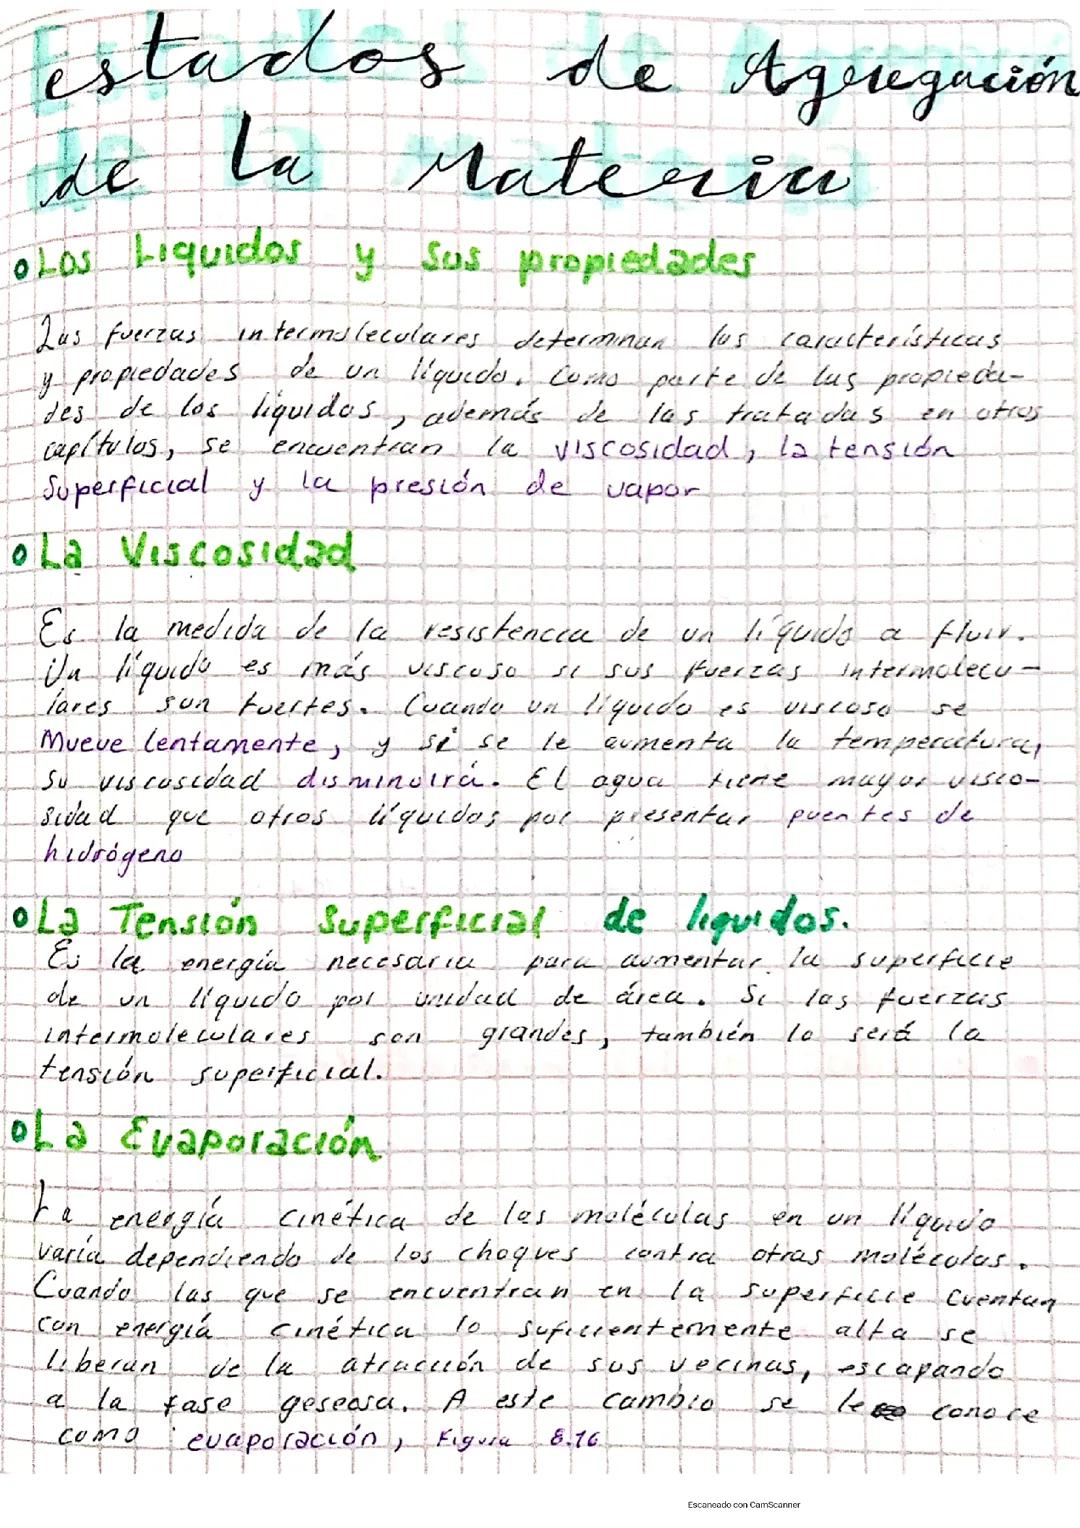 estados de Agregación
de la Materia
Los Liquidos y Sus propiedades
Las fuerzas intermoleculares determinan las características
y propiedades de un líquido. Como parte de las propieda-
des de los líquidos, además de las tratadas en otros
capítulos, se encuentran la viscosidad, la tensión
Superficial y la presión de vapor
La Viscosidad
Es la medida de la resistencia de un líquido a fluir.
Un líquido es más viscoso si sus fuerzas intermolecu-
lares son fuertes. Cuando un líquido es viscoso se
Mueve lentamente, y si se le aumenta la temperatura,
su viscosidad disminuirá. El agua tiene mayor visco-
sidad que otros líquidos por presentar puentes de
hidrógeno
La Tensión Superficial de liquidos.
Es la energía necesaria para aumentar la superficie
de un líquido por unidad de área. Si las fuerzas
intermoleculares son grandes, también lo será la
tensión superficial.
La Evaporación
La energía cinética de las moléculas en un líquido
varía dependiendo de los choques contra otras moléculas.
Cuando las que se encuentran en la superficie cuentan
con energía cinética lo suficientemente alta se
liberan de la atracción de sus vecinas, escapando
a la fase geseosa. A este cambio se le conoce
como evaporación, Figura 8.16
Escaneado con CamScanner